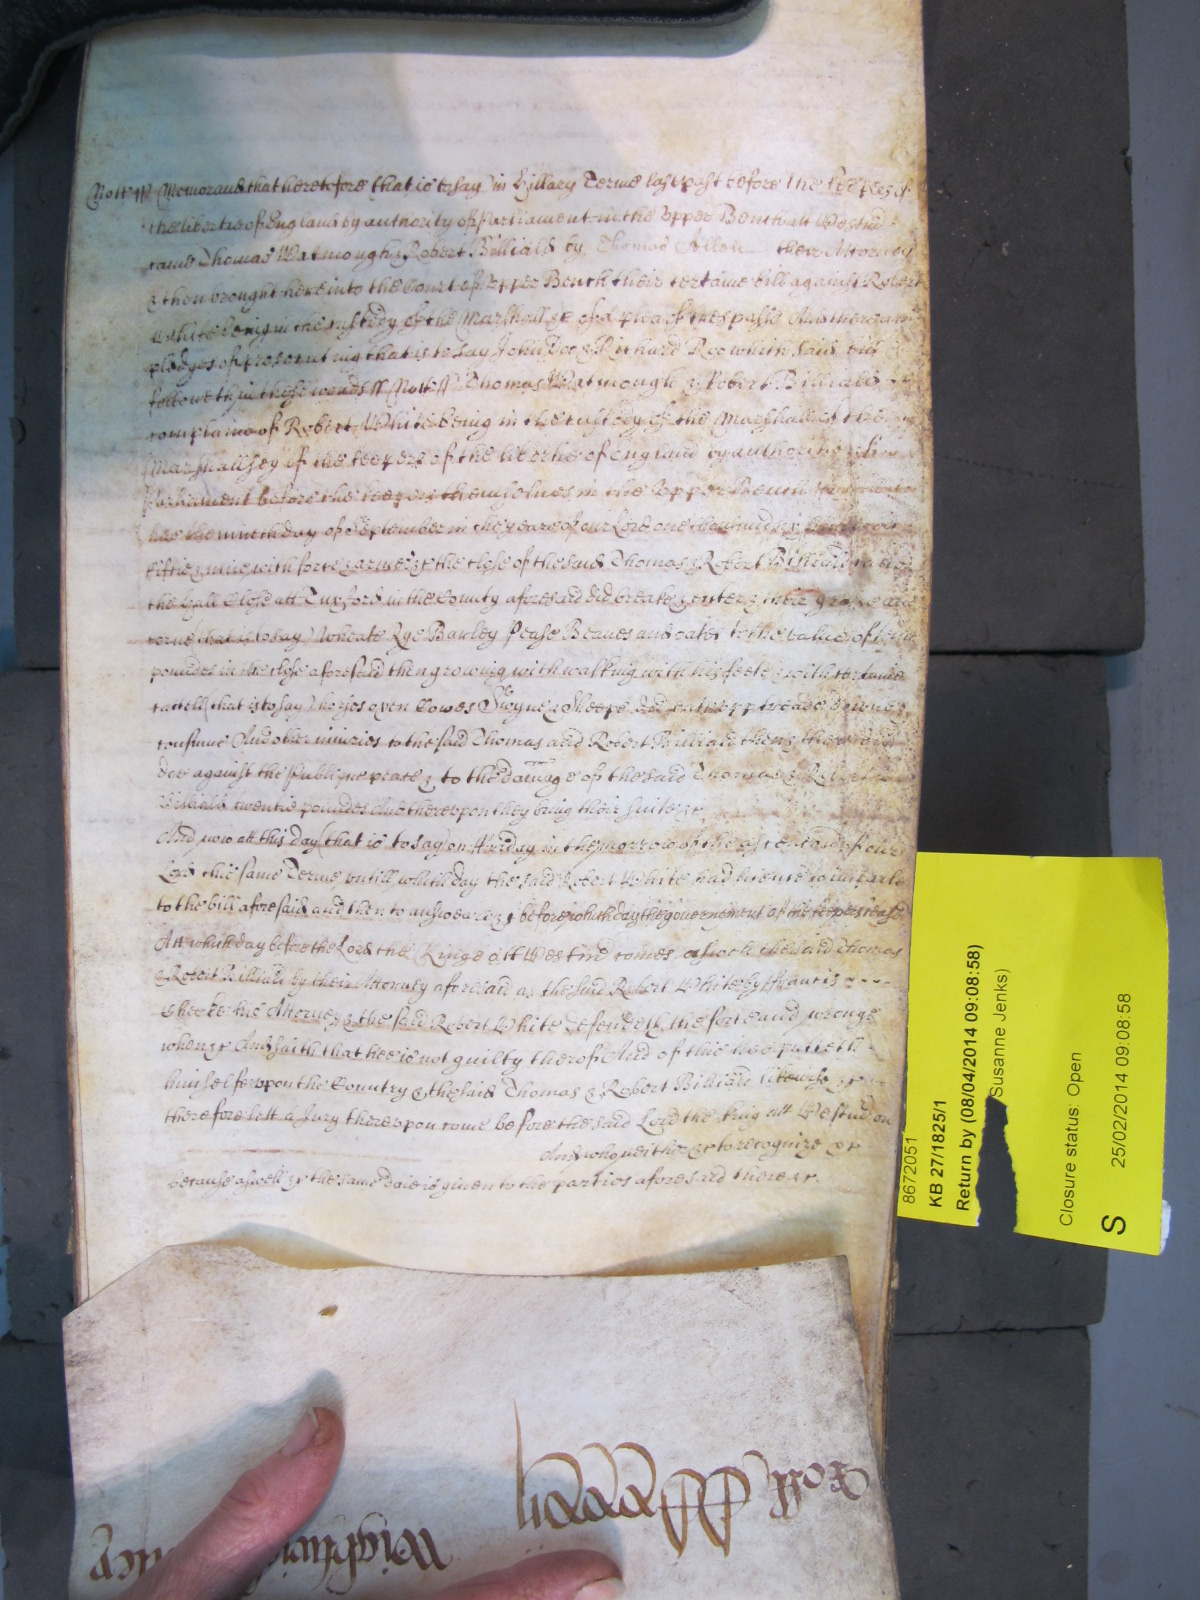 Nott ss Memorand that heretofore that is to say in Hillary Terme last past before the keepers of
the libertie of England by authority of Parliament in the Upper Bench att Westm
came Thomas Watmough & Robert Billiald by Thomas Allen their Attorney
& then brought here into the Court of Upper Bench their certaine bill against Robert
White being in the custody of the Marshall &c of a plea of trespasse And there are
pledges of prosecuting that is to say John Doe & Richard Roe which said bill
followeth in these words ss Nott ss Thomas Watmough & Robert Billiald
complaine of Robert White being in the custody of the Marshall of the
Marshallsey of the keepers of the libertie of England by authoritie of
Parliament before the keepers themselves in the Upper Bench
hee the ninth day of September in the yeare of our Lord one thousand six hundred
fiftie & nine with force & armes &c the close of the said Thomas & Robert Billiald called
the Hall Close att Tuxford in the County aforesaid did breake & enter & their grasse and
corne (that is to say) Wheate Rye Barley Pease Beanes and oates to the value of tenn
poundes in the close aforesaid then growing with walking with his feete & with certaine
cattell (that is to say) horses oxen Cowes Swyne & Sheepe did eate upp treade downe &
consume And other iniuries to the said Thomas and Robert Billiald then & there did
doe against the Publique peace & to the damage of the said Thomas & Robert
Billiald twentie poundes And thereupon they bring their suite &c
And now att this day (that is to say) on fryday in the morrow of the ascention of our
Lord this same Terme untill which day the said Robert White had licence to imparle
to the bill aforesaid and then to answeare &c & before which day the governement of the keepers ceased
Att which day before the Lord the Kinge att Westm comes aswell the said Thomas
& Robert Billiald by their Attorney aforesaid as the said Robert White by ffrancis
Cheeke his Attorney & the said Robert White defendeth the force and wronge
when &c And saith that hee is not guilty therof And of this hee putteth
himselfe upon the Country & the said Thomas & Robert Billiald likewise &c
therefore lett a Jury thereupon come before the said Lord the king att Westm on
And who neither &c to recognize &c
because aswell &c the same daie is given to the parties aforesaid there &c.
8672051
KB 27/1825/1
Return by (08/04/2014 09:08:58)
Susanne Jenks)
Closure status: Open
S
25/02/2014 09:08:58